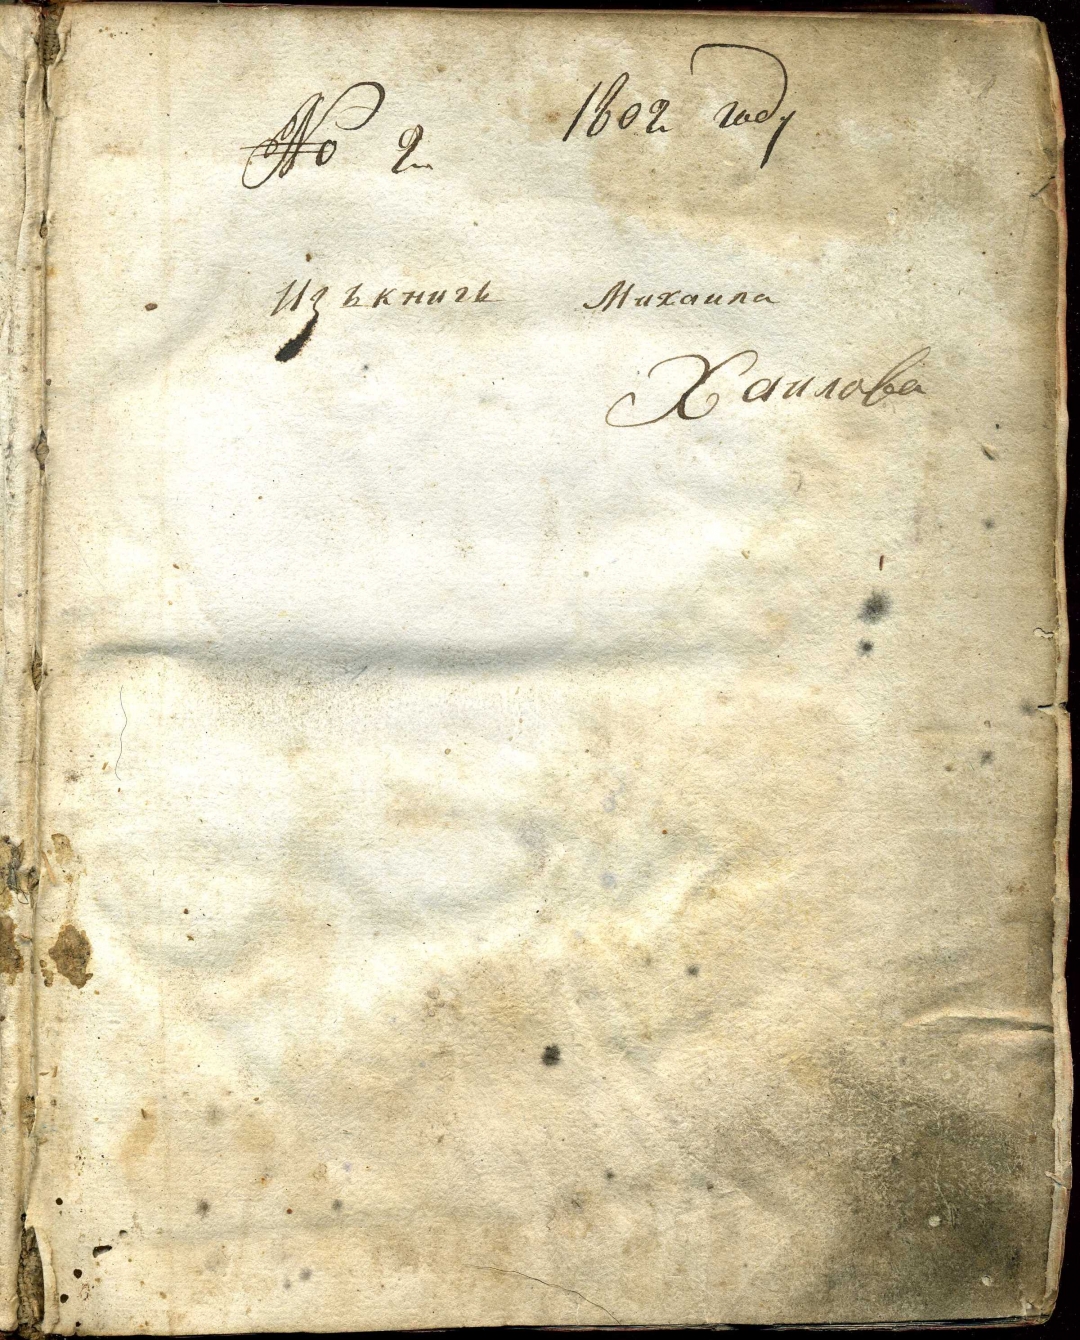 No 2. 1802 году
Изъ книгъ Михаила
Хаилова